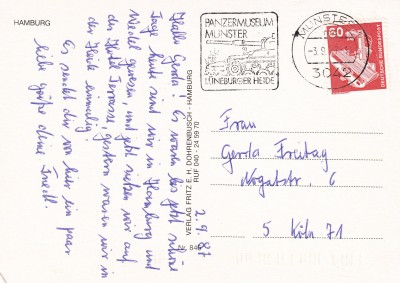 HAMBURG
Hallo Gerda! Es waren bis jetzt schöne
Tage heute sind wir in Hamburg und
Wedel gewesen, und jetzt sitzen wir auf
der Hotel Terrasse, gestern waren wir in
der Heide einmalig
Es sendet dir von hier ein paar
liebe Grüße deine
2.9.87
VERLAG FRITZ E. H. DOHRENBUSCH - HAMBURG
RUF 040 - 24 59 70
Nr. 846
PANZERMUSEUM
MUNSTER
LÜNEBURGER HEIDE
MUNSTER
3042
60
DEUTSCHE BUNDESPOST
Frau
Gerda Freitag
Nogatstr. 6
5 Köln 71